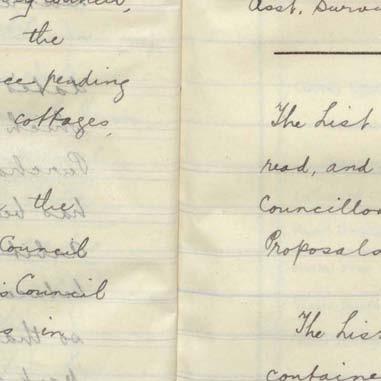 y Council,
the
ce pending
cottages,
the
Council
s Council
s in
Asst. Surve
The List
read, and
Councillor
Proposals
The Lis
containe